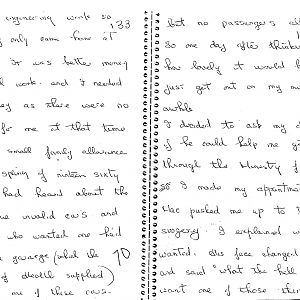 engineering work so
133
only came home at
it was better money
work and I needed
as there were no
for me at that time
small family allowance
spring of nineteen sixty
had heard about the
invalid cars and
who wanted me had
garage (what the
70
of Health supplied)
one of these cars.
but no passengers
So one day after
how lovely it would
just get out on my
awhile
I decided to ask my
if he could help me
through the Ministry
so I made my appointment
Mac pushed me up to
surgery. I explained
wanted. His face changed
and said "What the hell
want one of those